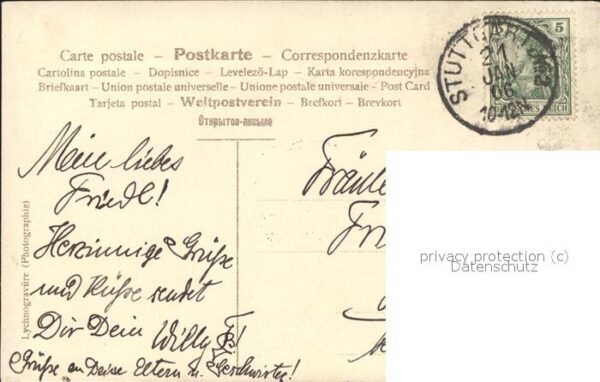 Carte postale – Postkarte – Correspondenzkarte
Cartolina postale – Dopisnice – Levelező-Lap – Karta korespondencyjna
Briefkaart – Union postale universelle – Unione postale universale – Post Card
Tarjeta postal – Weltpostverein – Brefkort – Brevkort
Открытое письмо
STUTTGART
21
JAN
06
10-12N
5
REICH
Mein liebes
Friedl!
Herzinnige Grüße
und Küsse sendet
Dir Dein Willy
Grüße an Deine Eltern u. Geschwister!
Lychnogravüre (Photographie)
Fräule
Fri
privacy protection (c)
Datenschutz